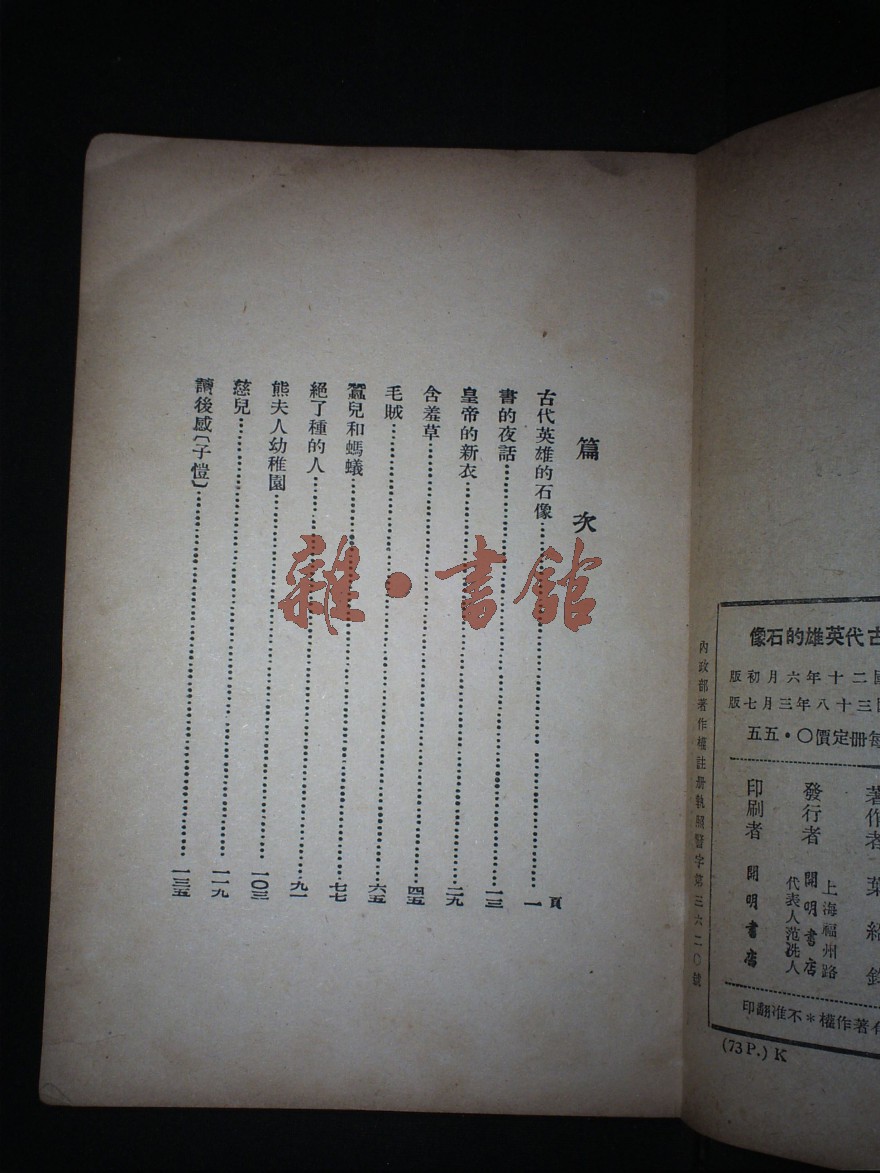 篇次
頁
古代英雄的石像 一
書的夜話 一三
皇帝的新衣 二九
含羞草 四五
毛賊 六五
蠶兒和螞蟻 七七
絕了種的人 九一
熊夫人幼稚園 一〇三
慈兒 一一九
讀後感〔子愷〕 一三五
雜·書館
古代英雄的石像
國二十年六月初版
國三十八年三月七版
每冊定價〇·五五
著作者 葉紹鈞
發行者 開明書店
上海福州路
代表人范洗人
印刷者 開明書店
有著作權*不准翻印
內政部著作權註册執照警字第三六二〇號
(73 P.) K